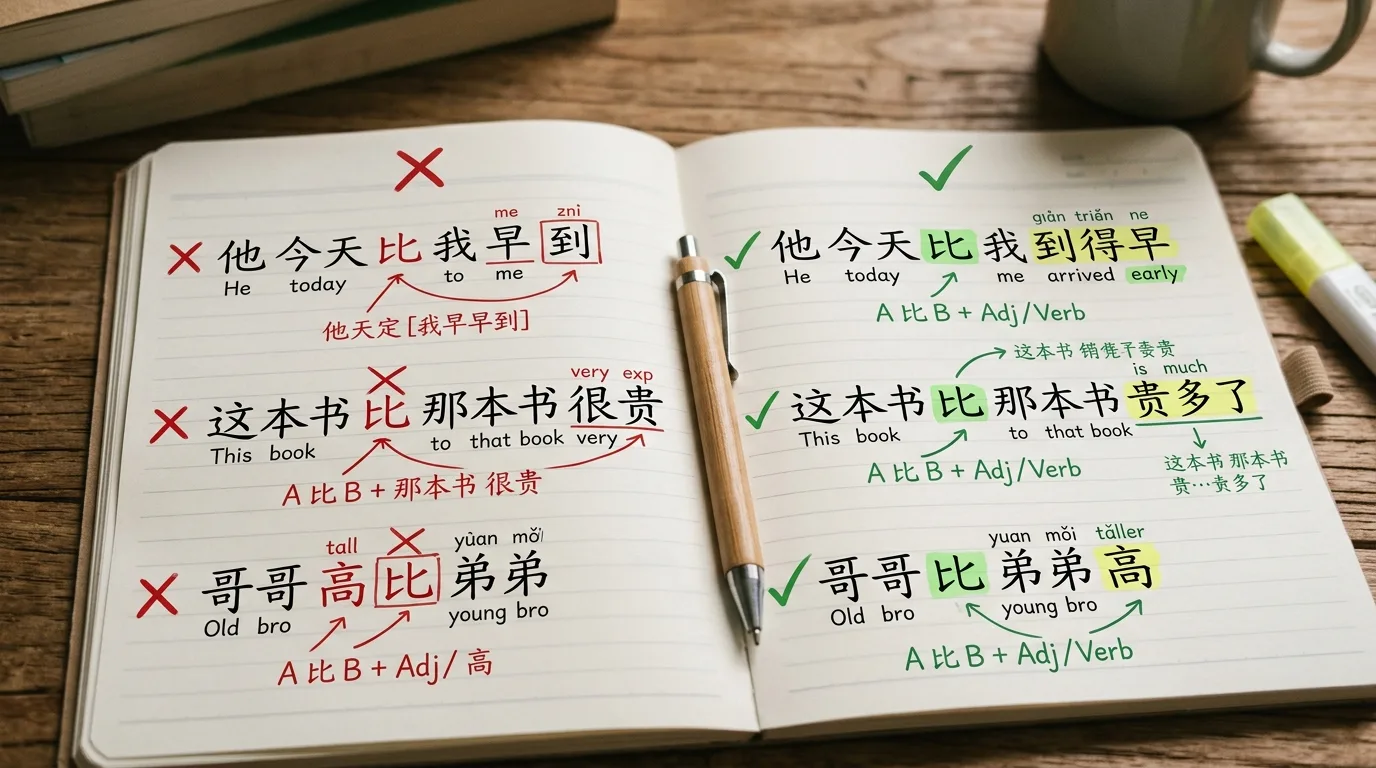 me zni
他今天比我早到
He today to me
他天定 [我早早到]
very exp
这本书比那本书很贵
This book to that book very
A 比 B + 那本书 很贵
tall yùan mǒi
哥哥高比弟弟
Old bro young bro
A 比 B + Adj/ 高
giàn triǎn ne
他今天比我到得早
He today me arrived early
A 比 B + Adj/Verb
这本书
贵
is much
这本书比那本书贵多了
This book to that book
A 比 B + Adj/Verb
这本书 那本书
贵…贵多了
yuan mǒi tǎller
哥哥比弟弟高
Old bro young bro
A 比 B + Adj/Verb